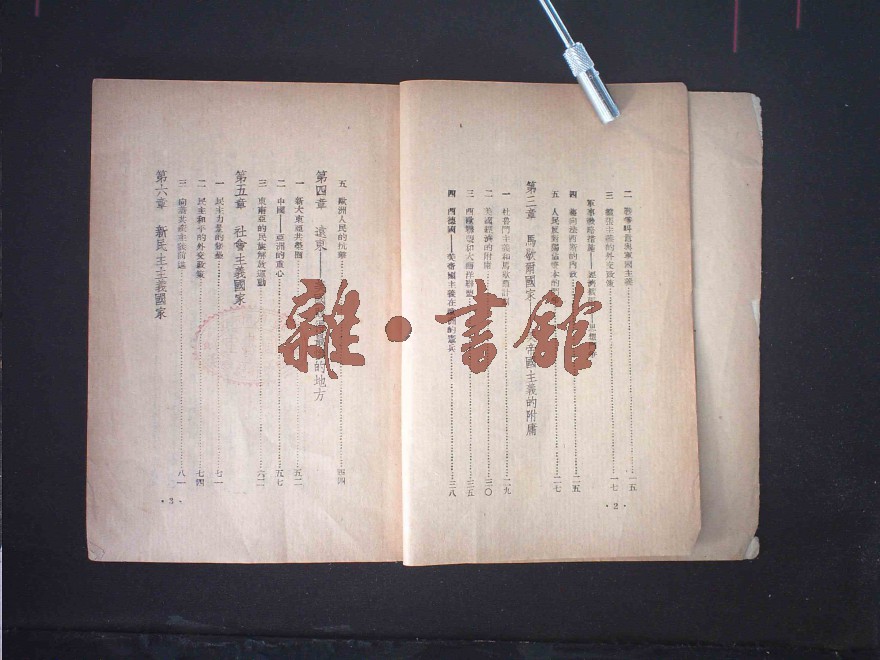 二 戰爭叫囂與軍國主義……一五
三 擴張主義的外交政策……一七
軍事戰略措施——經濟
四 走向法西斯的內政……二五
五 人民反對獨佔資本的……二七
第三章 馬歇爾國家 帝國主義的附庸
一 杜魯門主義和馬歇爾計……二九
二 經濟的附庸……三〇
三 西歐聯盟和大西洋聯盟……三五
四 西德國——美帝國主義在歐洲的憲兵……三八
·2·
五 歐洲人民的抗爭……四四
第四章 遠東—— 的地方
一 新大東亞共榮圈……五二
二 中國——亞洲的重心……五七
三 東南亞的民族解放運動……六二
第五章 社會主義國家
一 民主力量的堡壘……七一
二 民主和平的外交政策……七四
三 向着共產主義前進……八一
第六章 新民主主義國家
·3·
雜·書館